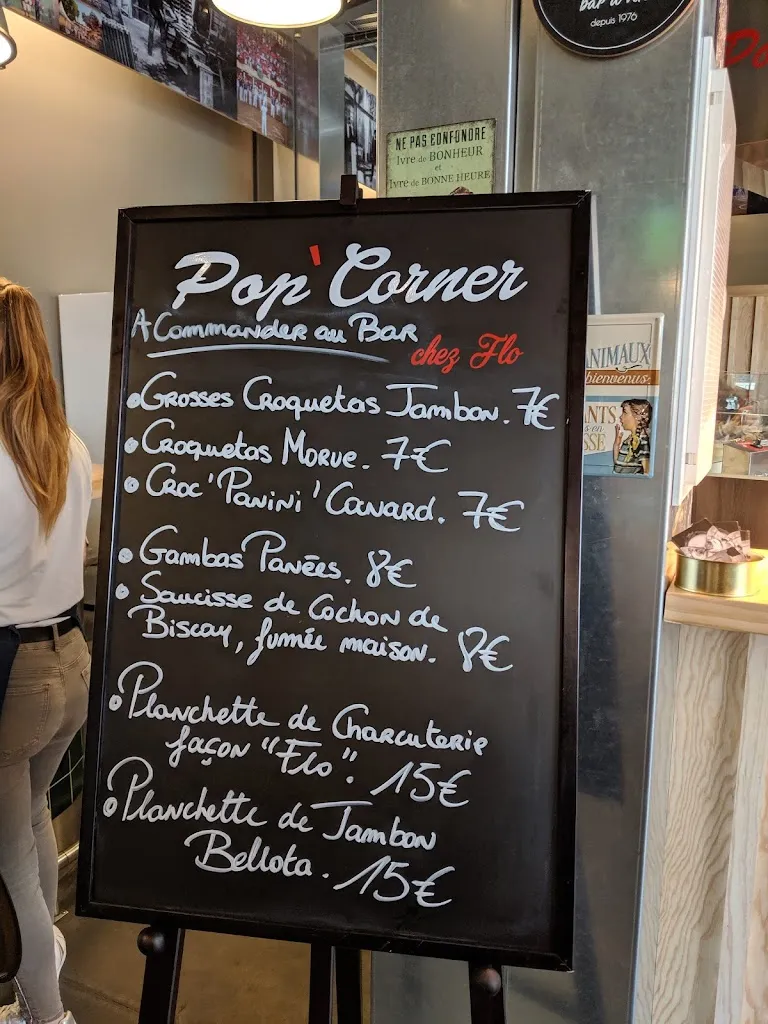 depuis 1976
NE PAS CONFONDRE
Ivre de BONHEUR
et
Ivre de BONNE HEURE
Pop'Corner
A Commander au Bar
chez Flo
• Grosses Croquetas Jambon. 7€
• Croquetas Morue. 7€
• Croc'Panini'Canard. 7€
• Gambas Panées. 8€
• Saucisse de Cochon de
Biscay, fumée maison. 8€
• Planchette de Charcuterie
façon "Flo". 15€
• Planchette de Jambon
Bellota. 15€
ANIMAUX
bienvenus